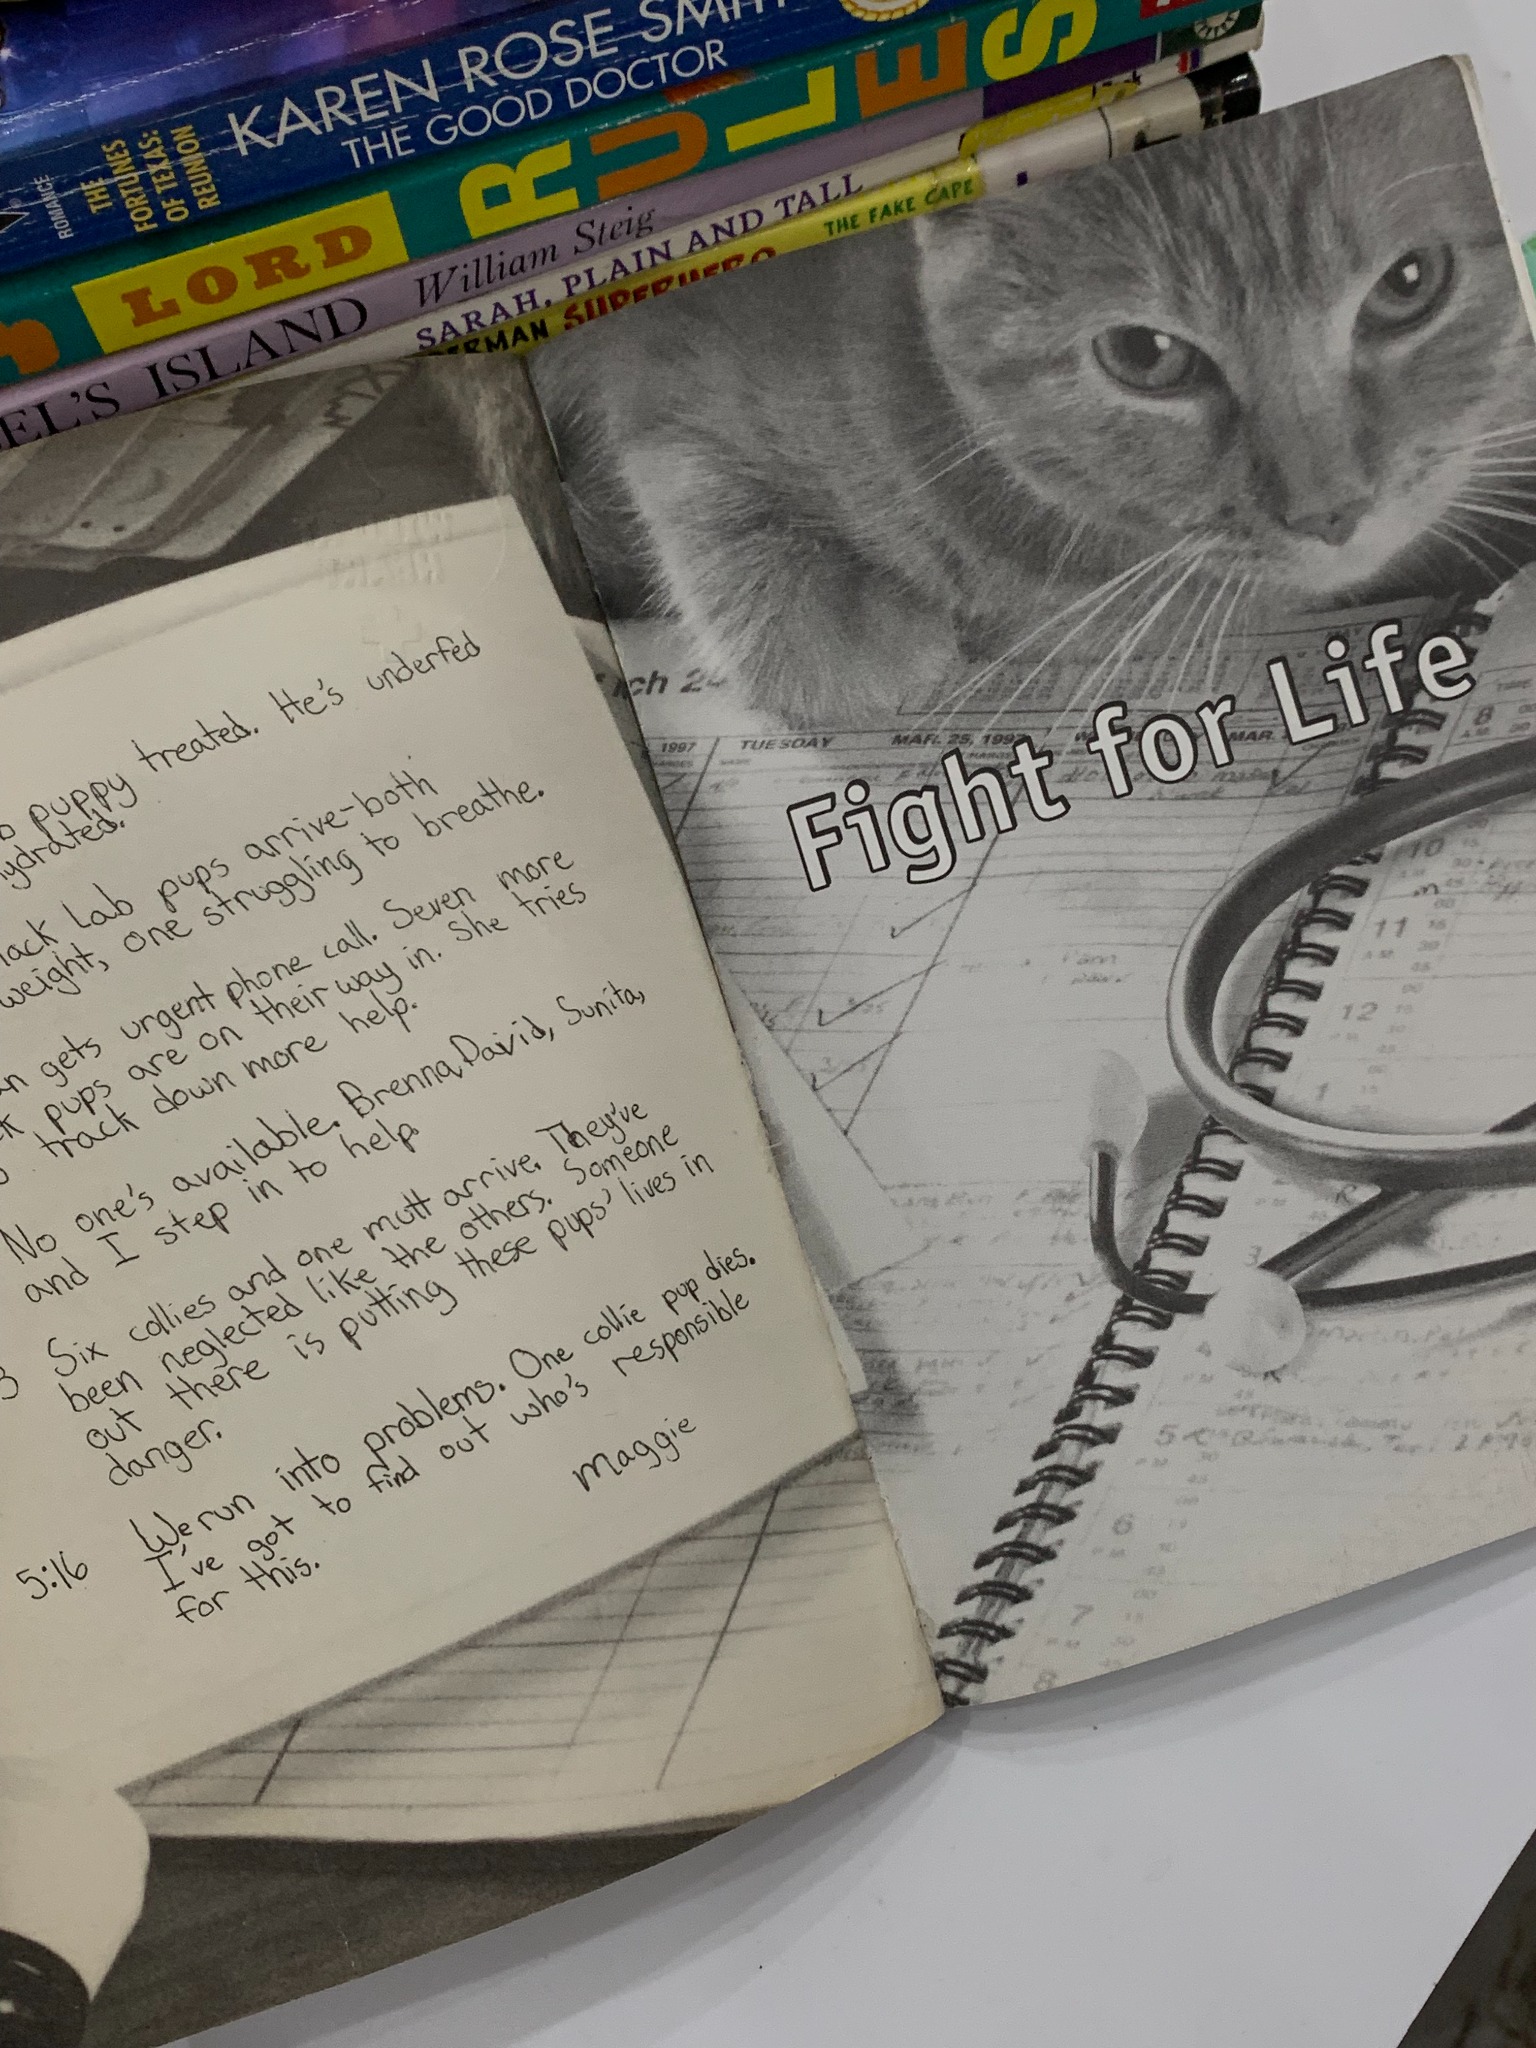 KAREN ROSE SMITH
THE GOOD DOCTOR
THE
FORTUNES
OF TEXAS:
REUNION
ROMANCE
LORD
RULES
William Steig
ISLAND
SARAH, PLAIN AND TALL
SUPERHERO
THE FAKE CAPE
puppy treated. He's underfed
Lab pups arrive-both
weight, one struggling to breathe.
gets urgent phone call. Seven more
pups are on their way in. She tries
track down more help.
No one's available. Brenna, David, Sunita,
and I step in to help.
Six collies and one mutt arrive. They've
been neglected like the others. Someone
out there is putting these pups' lives in
danger.
5:16 We run into problems. One collie pup dies.
I've got to find out who's responsible
for this.
Maggie
Fight for Life
1997
TUESDAY
MAR. 25, 1997
MAR.
8
10
11
12
1
3
4
5
6
7
8